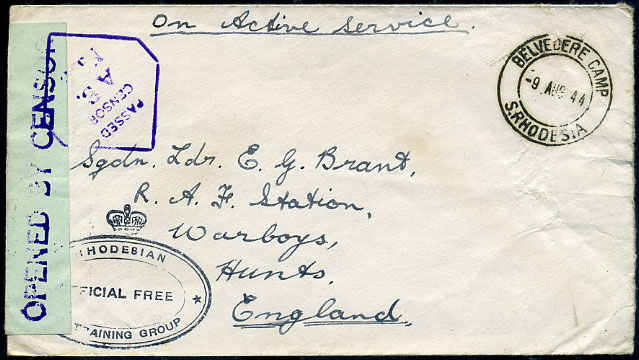 On Active Service.
BELVEDERE CAMP
-9 AUG 44
S. RHODESIA
PASSED
CENSOR
OPENED BY CENSOR
Sqdn. Ldr. E. G. Brant,
R. A. F. Station,
Warboys,
Hunts.
England.
RHODESIAN
FICIAL FREE
TRAINING GROUP